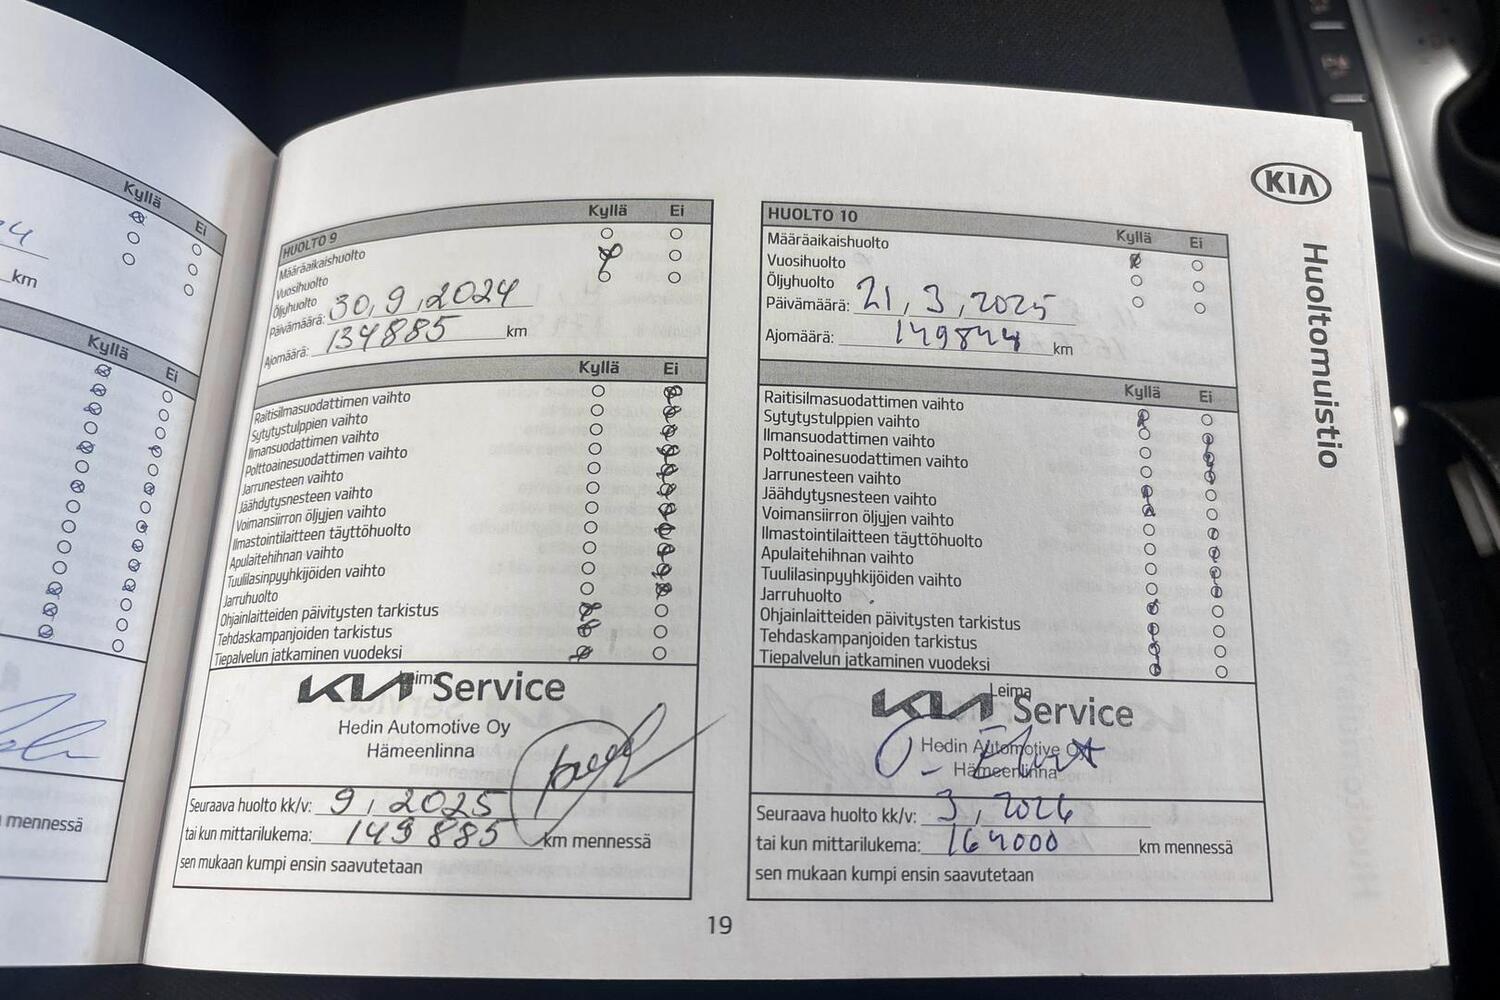 Kyllä
Ei
km
Kyllä
Ei
mennessä
HUOLTO 9
Kyllä
Ei
Määräaikaishuolto
Vuosihuolto
Öljyhuolto
Päivämäärä: 30,9,2024
Ajomäärä: 134885 km
Kyllä
Ei
Raitisilmasuodattimen vaihto
Sytytystulppien vaihto
Ilmansuodattimen vaihto
Polttoainesuodattimen vaihto
Jarrunesteen vaihto
Jäähdytysnesteen vaihto
Voimansiirron öljyjen vaihto
Ilmastointilaitteen täyttöhuolto
Apulaitehihnan vaihto
Tuulilasinpyyhkijöiden vaihto
Jarruhuolto
Ohjainlaitteiden päivitysten tarkistus
Tehdaskampanjoiden tarkistus
Tiepalvelun jatkaminen vuodeksi
Leima
KIA Service
Hedin Automotive Oy
Hämeenlinna
Seuraava huolto kk/v: 9, 2025
tai kun mittarilukema: 149885 km mennessä
sen mukaan kumpi ensin saavutetaan
HUOLTO 10
Kyllä
Ei
Määräaikaishuolto
Vuosihuolto
Öljyhuolto
Päivämäärä: 21,3,2025
Ajomäärä: 149844 km
Kyllä
Ei
Raitisilmasuodattimen vaihto
Sytytystulppien vaihto
Ilmansuodattimen vaihto
Polttoainesuodattimen vaihto
Jarrunesteen vaihto
Jäähdytysnesteen vaihto
Voimansiirron öljyjen vaihto
Ilmastointilaitteen täyttöhuolto
Apulaitehihnan vaihto
Tuulilasinpyyhkijöiden vaihto
Jarruhuolto
Ohjainlaitteiden päivitysten tarkistus
Tehdaskampanjoiden tarkistus
Tiepalvelun jatkaminen vuodeksi
Leima
KIA Service
Hedin Automotive Oy
Hämeenlinna
Seuraava huolto kk/v: 3, 2026
tai kun mittarilukema: 164000 km mennessä
sen mukaan kumpi ensin saavutetaan
KIA
Huoltomuistio
19